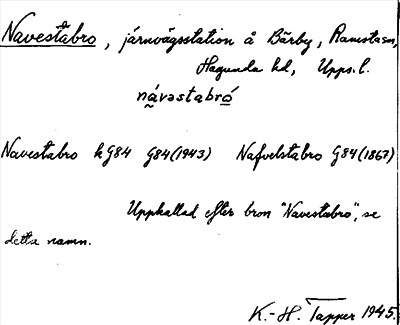 Navestabro, järnvägsstation å Bärby, Ramstasn,
Hagunda hd, Upps. l.
nåvəstabró
Navestabro k G84 G84(1943) Nafvelstabro G84(1867)
Uppkallad efter bron "Navestabro", se
detta namn.
K.-H. Tapper 1945.